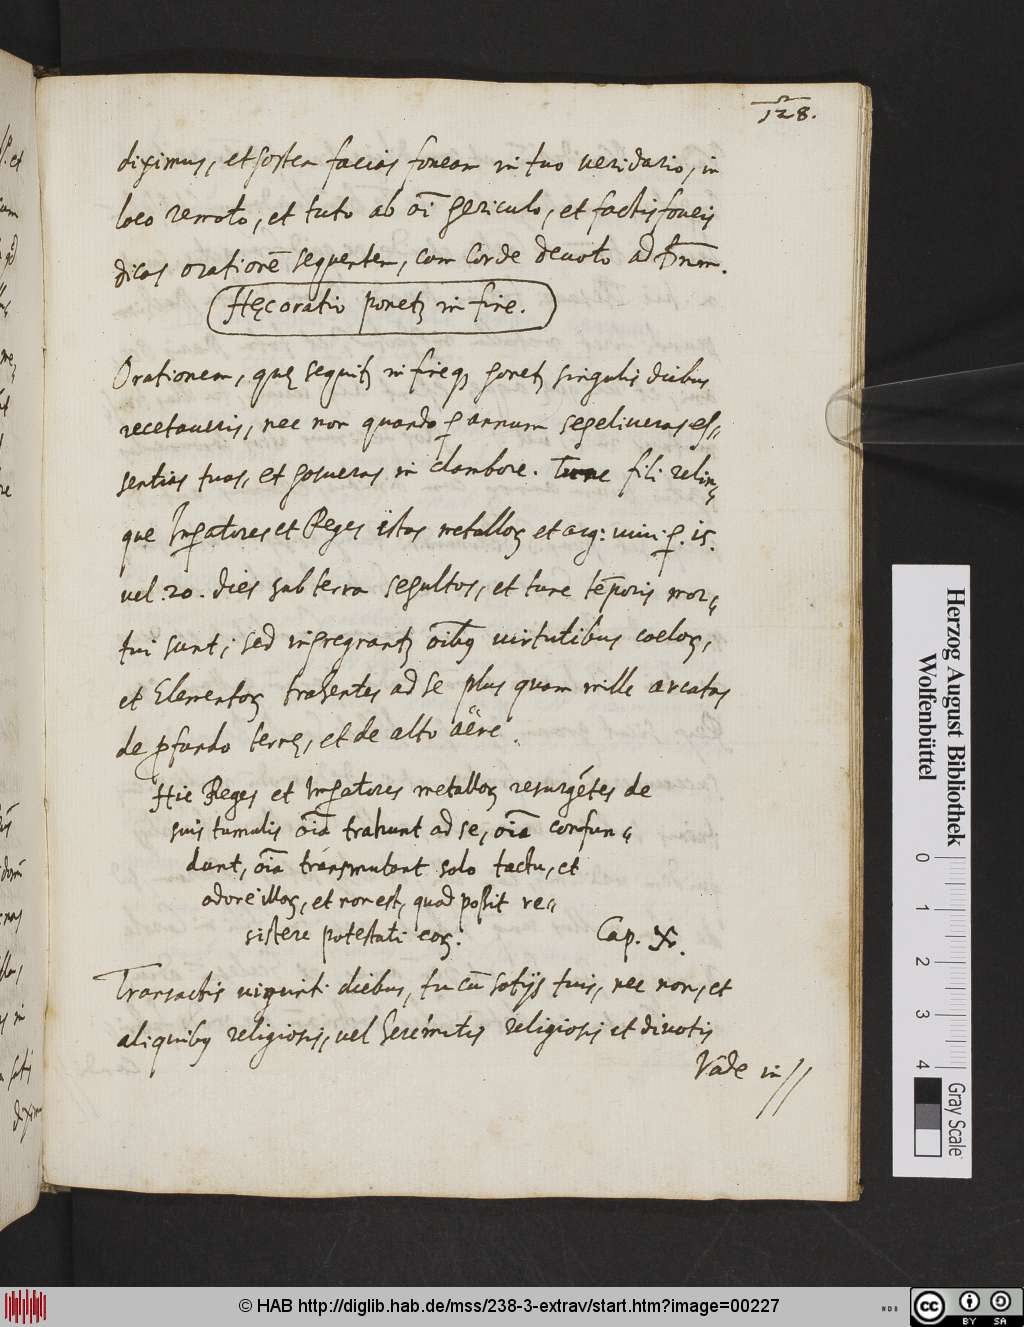 128.
diximus, et postea facias foueam in tuo ueridario, in
loco remoto, et tuto ab oī periculo, et factis foueis
dicas orationē sequentem, cum corde deuoto ad Dnm.
Hęc oratio ponetꝫ in fine.
Orationem, quę sequitꝫ in fineqꝫ ponetꝫ singulis diebus
recetaueris, nec non quando ꝑ annum sepelіueras es„
sentias tuas, et posueras in clambore. Tunc fili relin„
que Imꝑatores et Reges istos metalloꝝ et arg: uiui ꝑ. 15.
uel .20. dies sub terra sepultos, et tunc tēporis mor„
tui sunt; sed inpregnantꝫ oībꝫ uirtutibus coeloꝝ,
et Elementoꝝ trahentes ad se plus quam mille arcatas
de ꝓfundo terrę, et de alto aëre.
Hic Reges et Imꝑatores metalloꝝ resurgētes de
suis tumulis oīa trahunt ad se, oīa confun„
dunt, oīa transmutant solo tactu, et
odore illoꝝ, et non est, quod possit re„
sistere potestati eoꝝ.
Cap. X.
Transactis uigunti diebus, tu cū sotijs tuis, nec non, et
aliquibꝫ religiosis, uel heremitis religiosis et diuotis
Vade in //
Herzog August Bibliothek
Wolfenbüttel
0 1 2 3 4
Gray Scale
© HAB http://diglib.hab.de/mss/238-3-extrav/start.htm?image=00227
cc BY SA